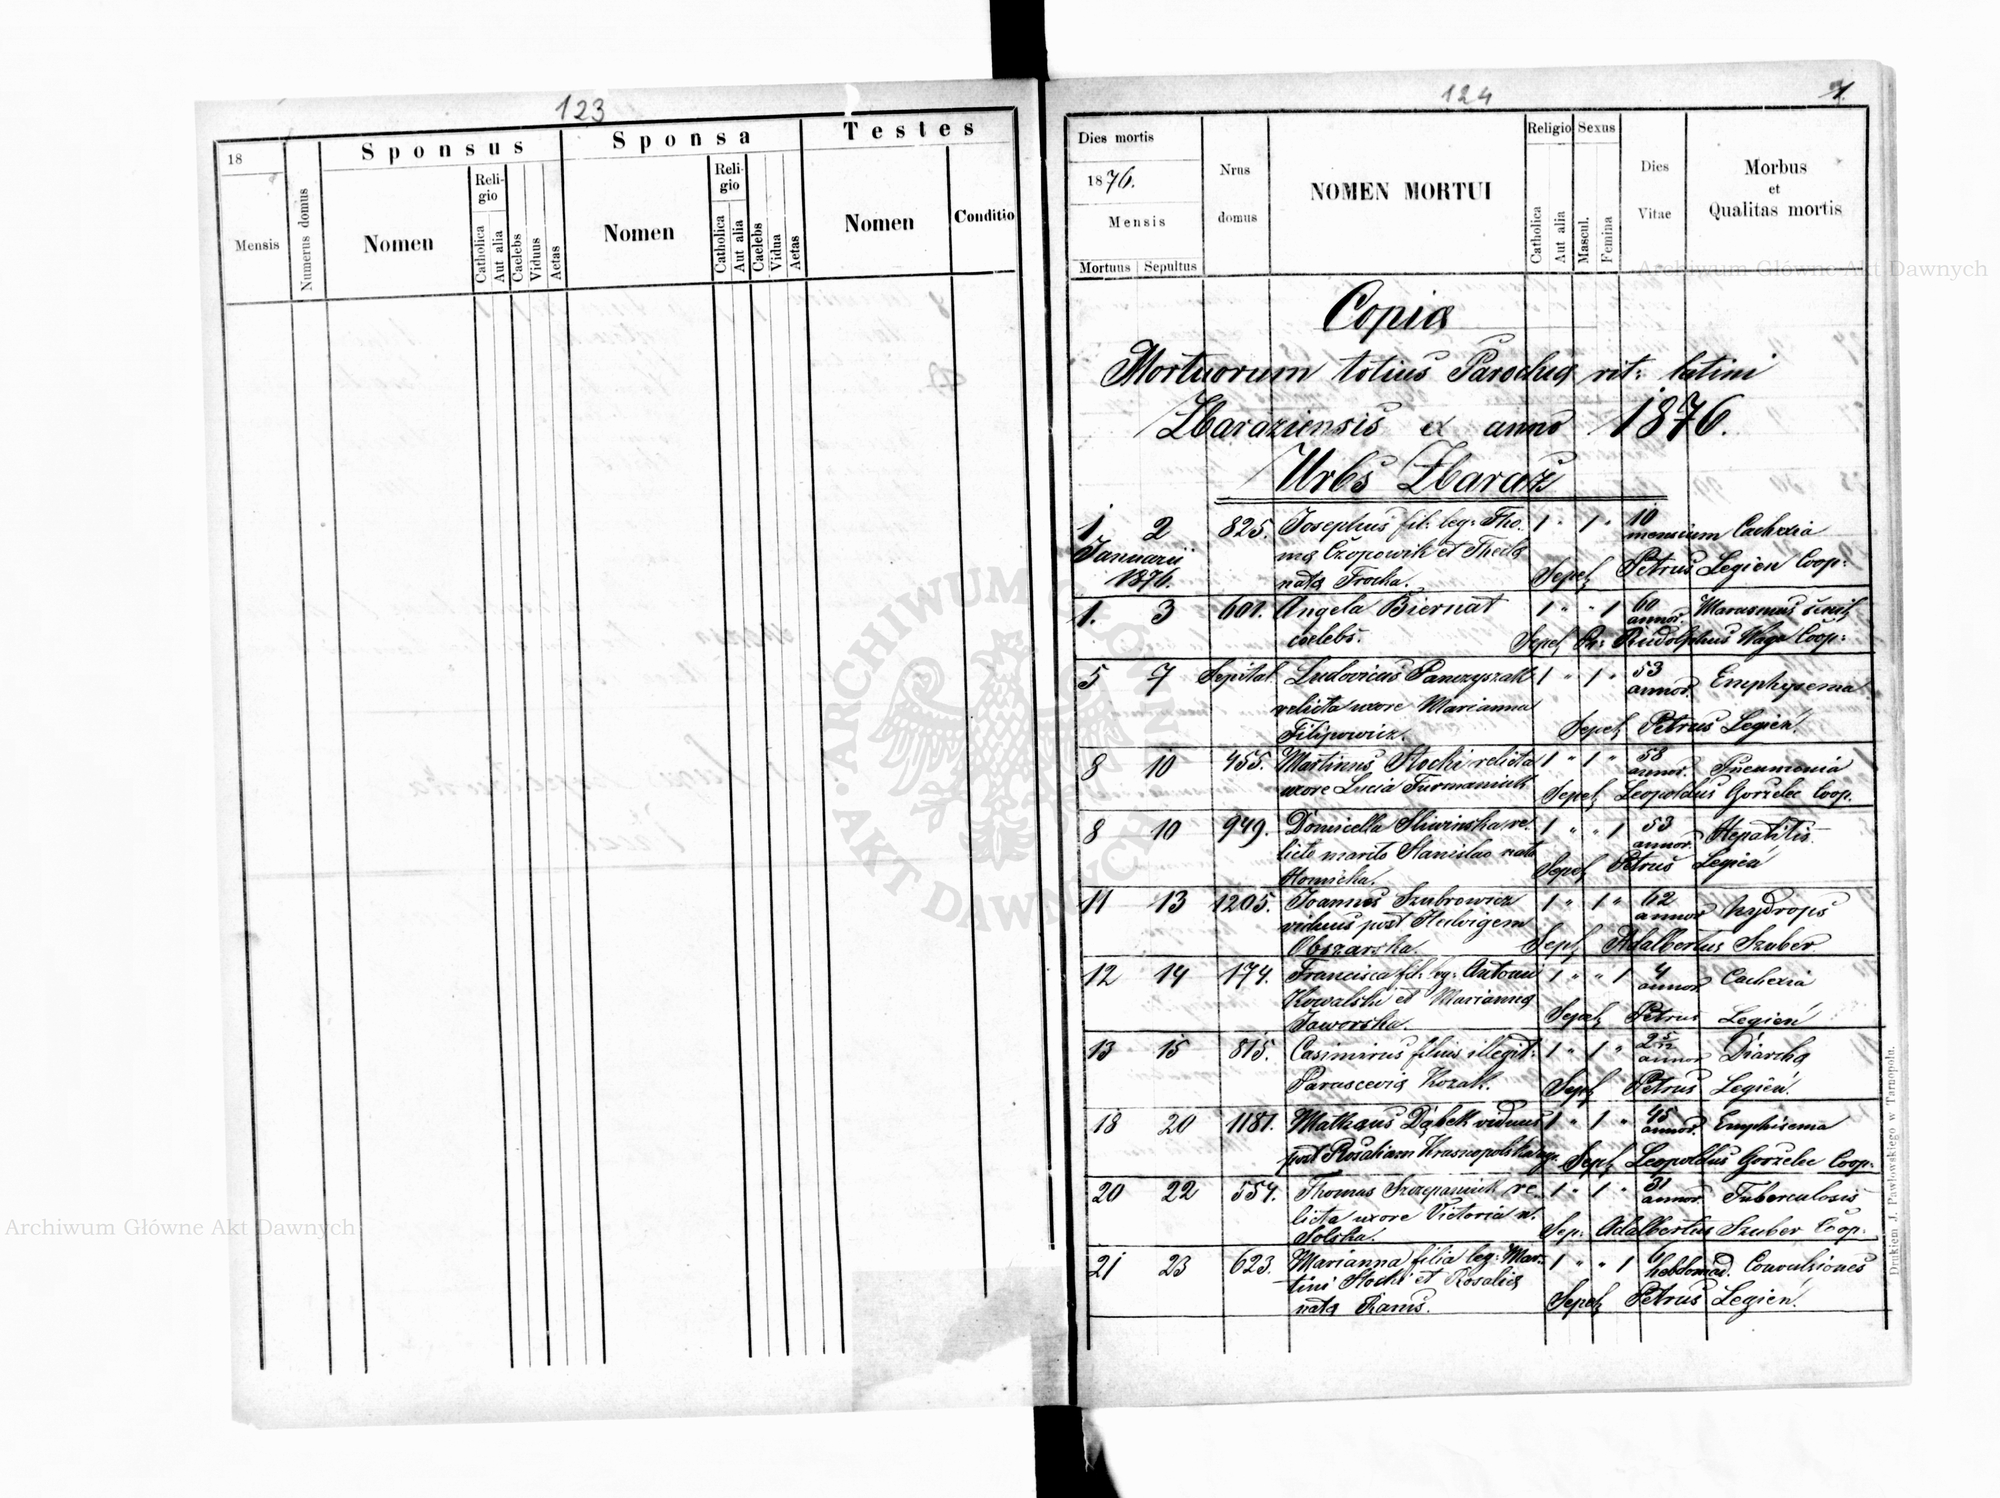 123
18
Mensis
Numerus domus
Sponsus
Nomen
Reli-
gio
Catholica
Aut alia
Caelebs
Viduus
Aetas
Sponsa
Nomen
Reli-
gio
Catholica
Aut alia
Caelebs
Vidua
Aetas
Testes
Nomen
Conditio
124
Dies mortis
1876.
Mensis
Mortuus Sepultus
Nrus
domus
NOMEN MORTUI
Religio
Catholica
Aut alia
Sexus
Mascul.
Femina
Dies
Vitae
Morbus
et
Qualitas mortis
Copia
Mortuorum totius Parochiæ rit: latini
Zbaraziensis ex anno 1876.
Urbs Zbaraż
1. 2 825. Josephus fil: leg: Tho- 1 " 1 " 10
Januarii mæ Czopowik et Theclæ mensium Cachexia
1876. nata Trocka. Sepel Petrus Legień Coop:
1. 3 601. Angela Biernat 1 " " 1 60 Marasmus senil
coelebs. annor. Sepel Rudolphus Waga Coop:
5 7 Szpital Ludovicus Panczyszak 1 " 1 " 53
relicta uxore Marianna annor. Emphysema
Filipowicz. Sepel Petrus Legień
8 10 455. Martinus Stocki relicta 1 " 1 " 58
uxore Lucia Furmaniuk annor. Pneumonia
Sepel Leopoldus Gorzelec Coop.
8 10 949. Domicella Sliwinska re- 1 " " 1 53
licto marito Stanislao nata annor. Hepatitis
Homicka. Sepel Petrus Legień
11 13 1205. Joannes Szubrowicz 1 " 1 " 62
viduus post Hedwigem annor hydrops
Obszarska. Sepel Adalbertus Szuber
12 14 174. Francisca fil: leg: Antoni 1 " " 1 4
Kowalski et Mariannæ annor Cachexia
Jaworska. Sepel Petrus Legień
13 15 815. Casimirus filius illegit: 1 " 1 " 2 5/12
Parasceviæ Kozak. annor Diarhæ
Sepel Petrus Legień
18 20 1181. Mathæus Dąbek viduus 1 " 1 " 45
post Rosaliam Krasnopolska annor. Emphisema
Sepel Leopoldus Gorzelec Coop.
20 22 554. Thomas Szczepaniuk re- 1 " 1 " 31
licta uxore Victoria n. annor. Tuberculosis
Solska. Sep: Adalbertus Szuber Coop.
21 23 623. Marianna filia leg: Mar- 1 " " 1 6
tini Stocki et Rosaliæ hebdomad. Convulsiones
nata Banis. Sepel Petrus Legień
Drukiem J. Pawłowskiego w Tarnopolu.
ARCHIWUM GŁÓWNE AKT DAWNYCH
Archiwum Główne Akt Dawnych
Archiwum Główne Akt Dawnych